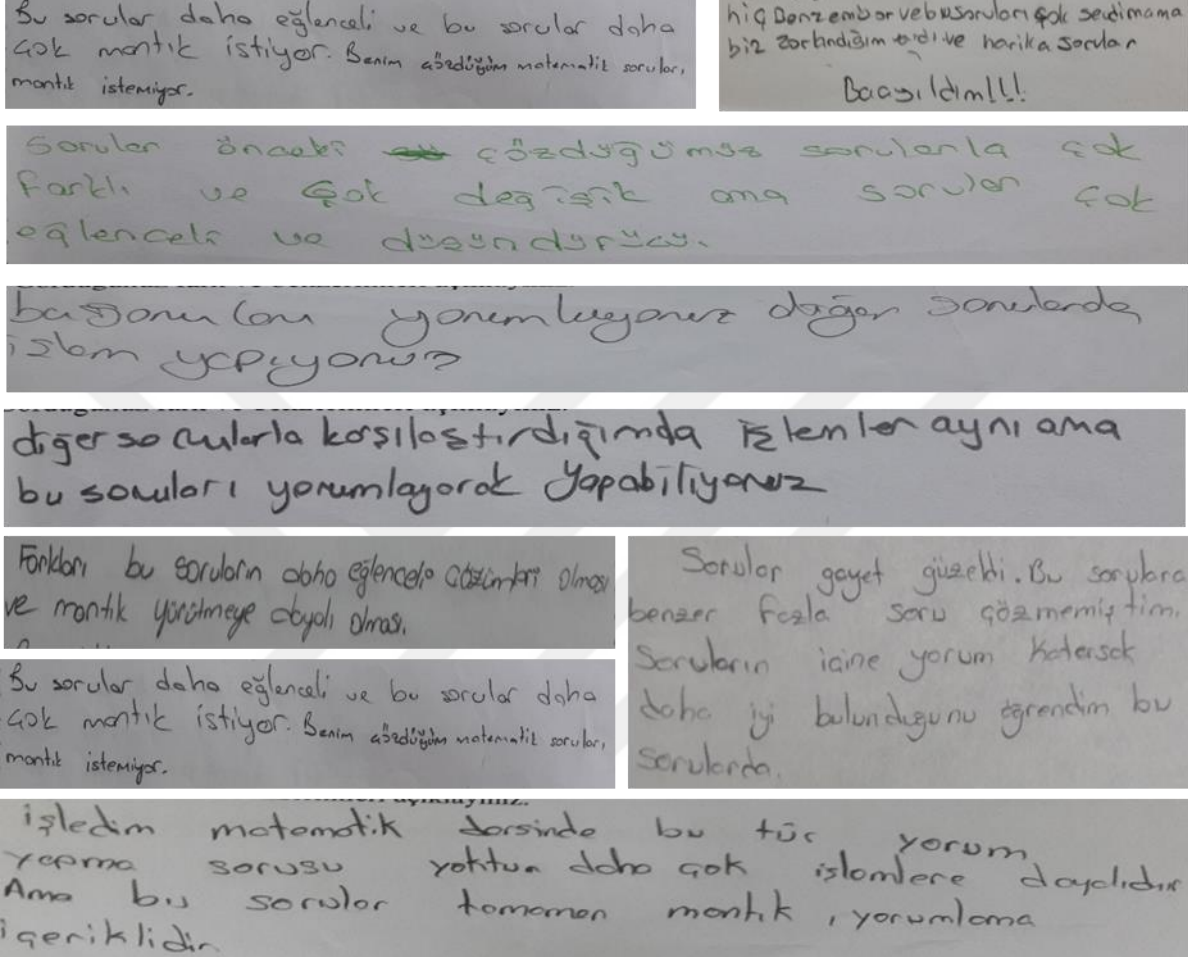 Bu sorular daha eğlenceli ve bu sorular daha
çok mantık istiyor. Benim çözdüğüm matematik sorular,
mantık istemiyor.
hiç Benzembor ve bu soruları çok sevdim ama
biz zorlandığım ve harika sorular
Baayıldım!!!
Sorular önceki çözdüğümüz sorularla çok
farklı ve çok değişik ama sorular çok
eğlenceli ve düşündürücü.
yorumluyoruz diğer sorularda
işlem yapıyoruz
diğer sorularla karşılaştırdığımda işlemler aynı ama
bu soruları yorumlayarak yapabiliyoruz
Farkları bu soruların daha eğlenceli çözümleri olması
ve mantık yürütmeye dayalı olması.
Bu sorular daha eğlenceli ve bu sorular daha
çok mantık istiyor. Benim çözdüğüm matematik soruları,
mantık istemiyor.
Sorular gayet güzeldi. Bu sorulara
benzer fazla soru çözmemiştim.
Soruların içine yorum katersak
daha iyi bulunduğunu öğrendim bu
sorularda.
işledim matematik dersinde bu tür yorum
yapma sorusu yoktur daha çok işlemlere dayalıdır
Ama bu sorular tamamen mantık, yorumlama
içeriklidir